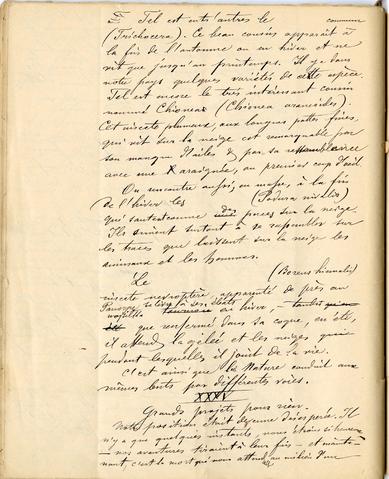 Tel est entr'autres le commun
(Trichocera). Ce beau cousin apparaît à
la fin de l'automne ou en hiver et ne
vit que jusqu'au printemps. Il y a dans
notre pays quelques variétés de cette espèce.
Tel est encore le très intéressant cousin
nommé Chionea (Chionea araneoides).
Cet insecte plumeux aux longues pattes fines,
qui vit sur la neige est remarquable par
son manque d'ailes & par sa ressemblance
avec une araignée, au premier coup d'oeil.
On rencontre aussi, en masse, à la fin
de l'hiver les (Podura nivalis)
qui sautent comme des puces sur la neige.
Ils aiment surtout à se rassembler sur
les traces que laissent sur la neige les
animaux et les hommes.
Le (Boreus hiemalis)
insecte nevroptère, apparenté de près au
Panorpe se livre à ses ébats
en hiver,
que renfermé dans sa coque, en été,
il attend la gelée et les neiges qui
pendant lesquelles il jouit de la vie.
C'est ainsi que la Nature conduit aux
mêmes buts par différentes voies.
XXXV
Grands projets pour rien.
Notre position était désespérée. Il
n'y a que quelques instants, nous étions si heureux
– nos aventures tiraient à leur fin – et mainte-
nant, c'est la mort qui nous attend, au milieu d'une